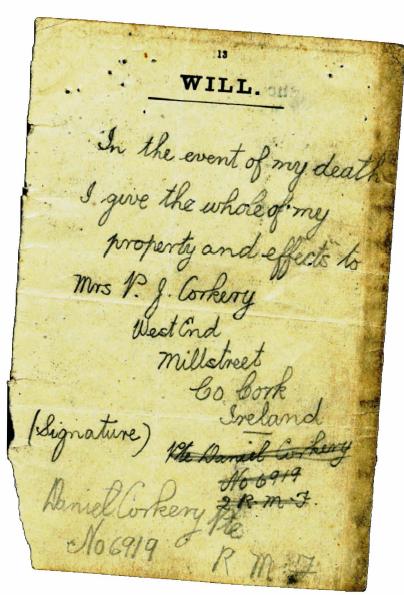 13
WILL.
In the event of my death
I give the whole of my
property and effects to
Mrs P. J. Corkery
West End
Millstreet
Co. Cork
Ireland
(Signature)
Pte Daniel Corkery
No 6919
2 R. M. F.
Daniel Corkery Pte
No 6919
R M F